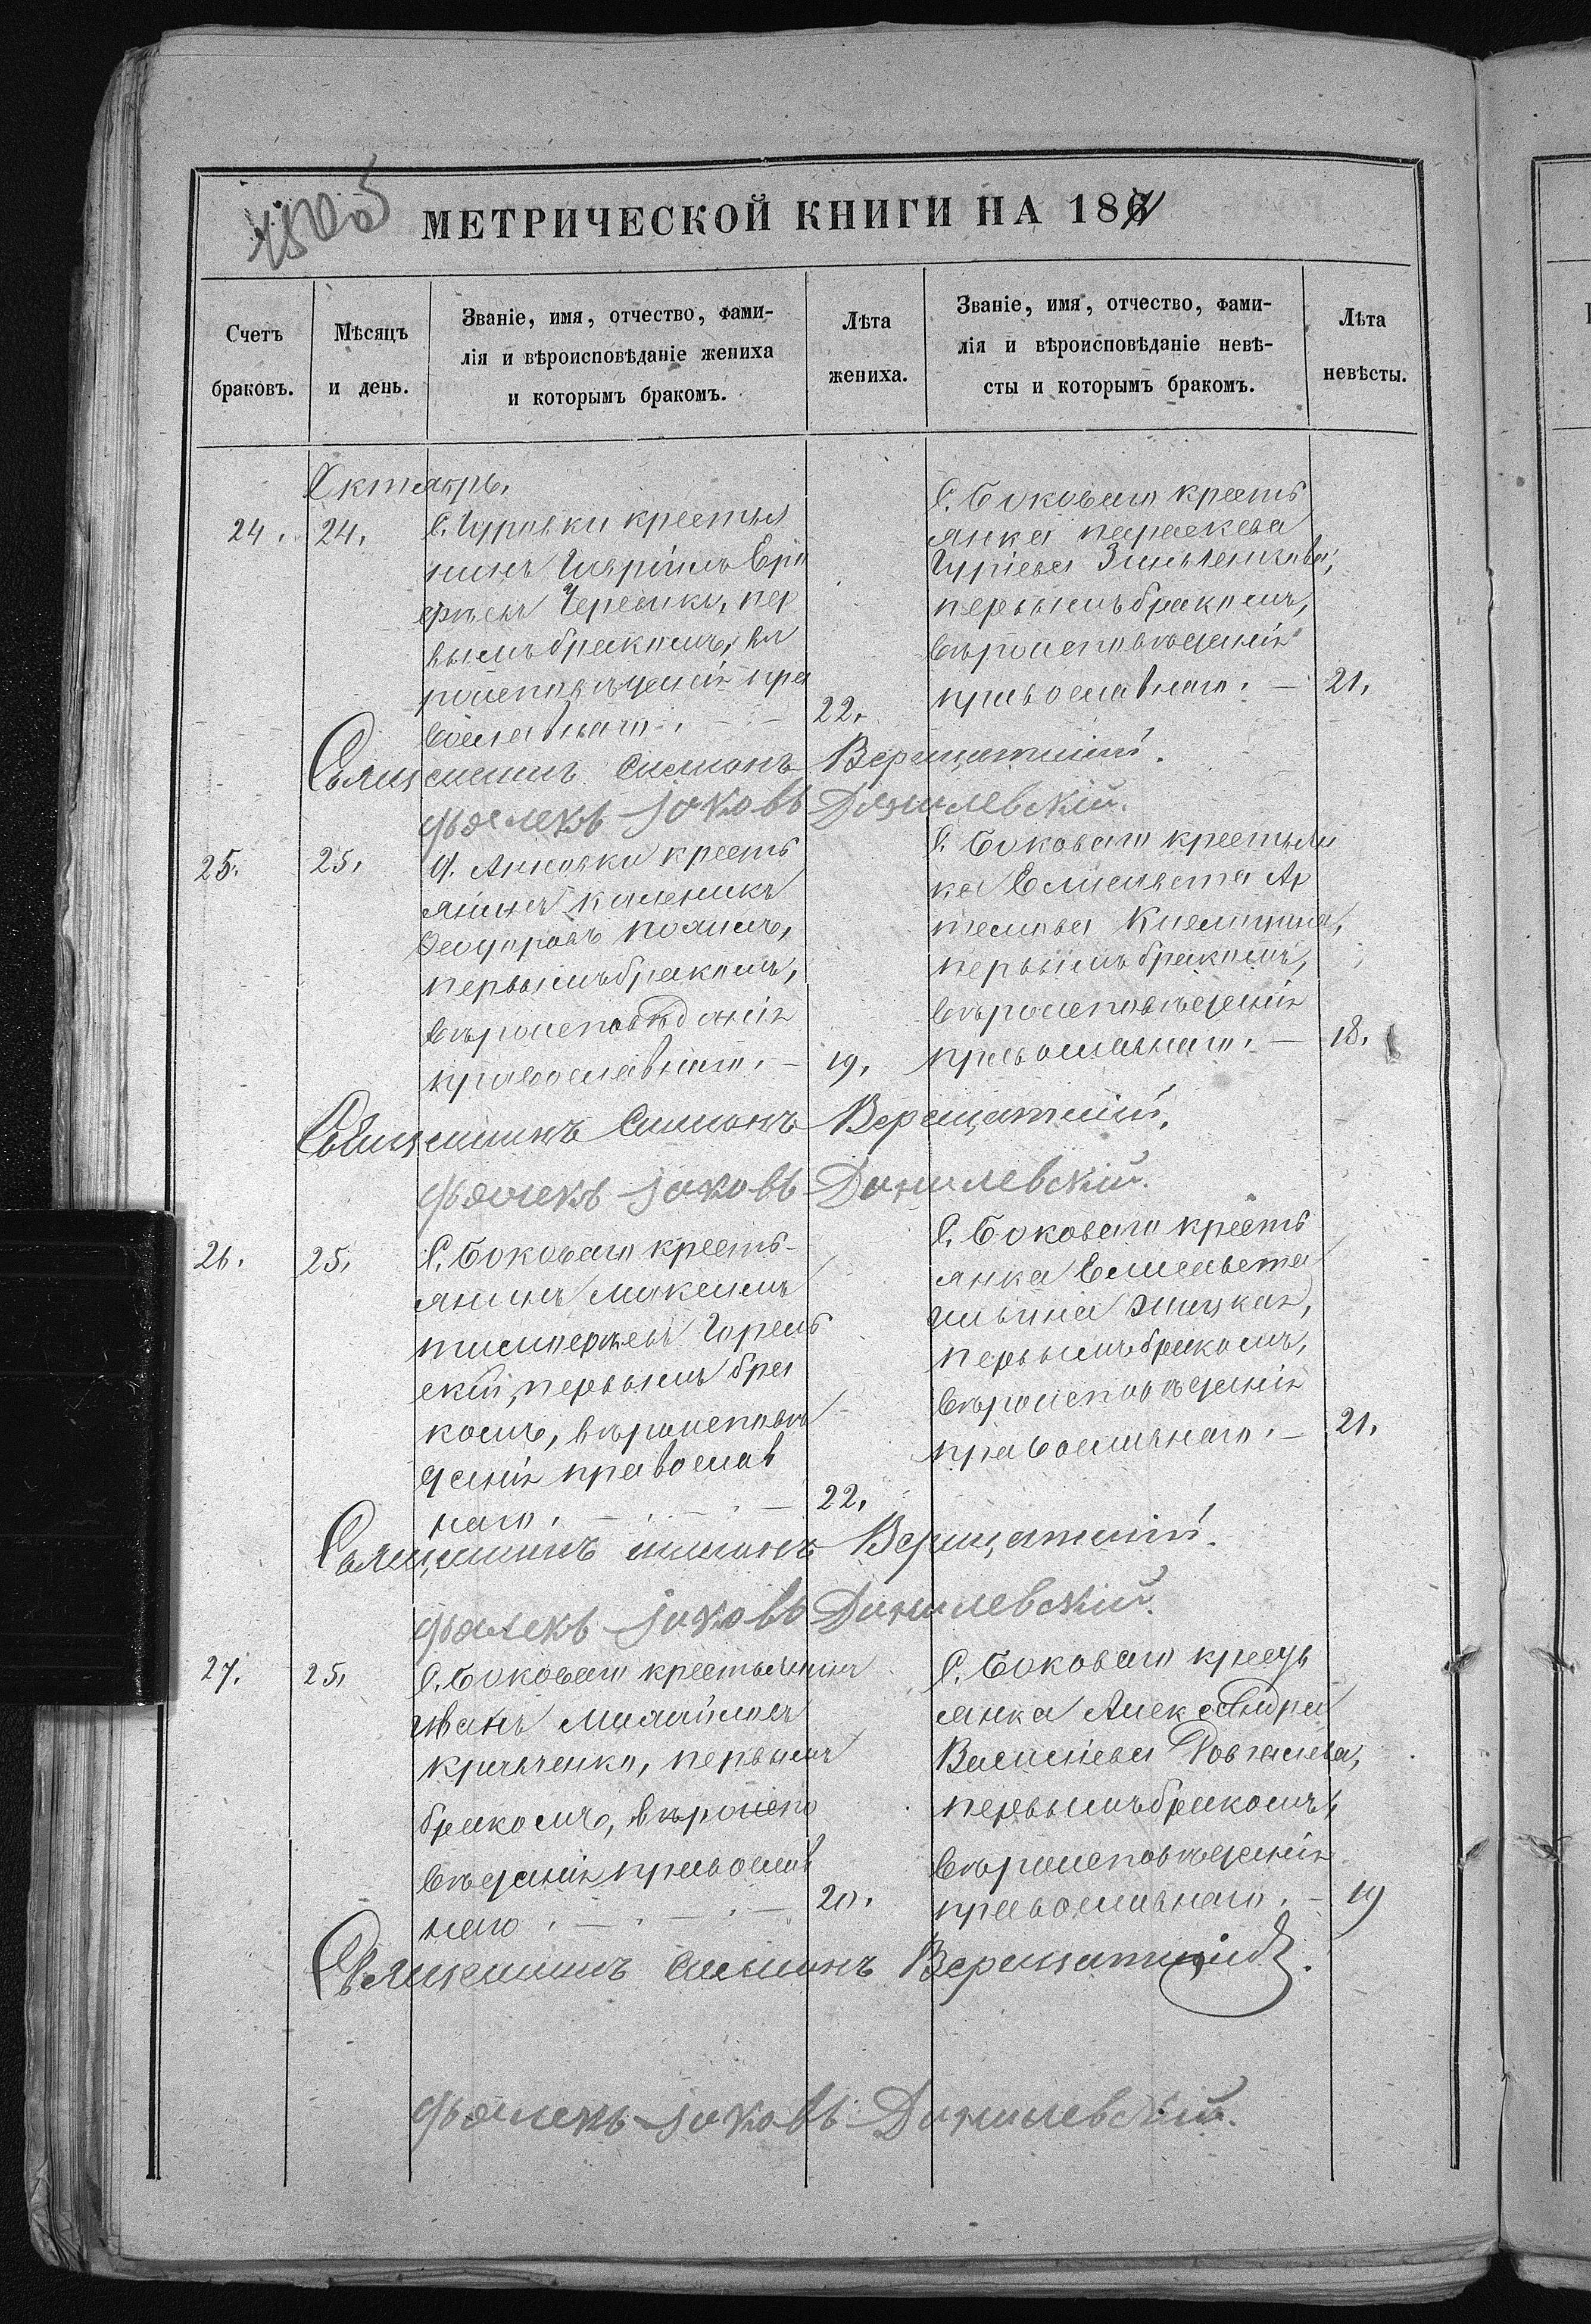 МЕТРИЧЕСКОЙ КНИГИ НА 1871
Счетъ браковъ.
Мѣсяцъ и день.
Званіе, имя, отчество, фами-
лія и вѣроисповѣданіе жениха
и которымъ бракомъ.
Лѣта жениха.
Званіе, имя, отчество, фами-
лія и вѣроисповѣданіе невѣ-
сты и которымъ бракомъ.
Лѣта невѣсты.
Октябрь.
24.
24.
С. Гуровки крестья
нинъ Гавріилъ
Черевикъ, пер
вымъ бракомъ, вѣ
роисповѣданія пра
вославнаго.
22.
С. Боковаго кресть
янка Параскева
Гуріева Зинченкова,
первымъ бракомъ,
вѣроисповѣданія
православнаго.
21.
Священникъ Симонъ Верещатскій.
Дьячекъ Іаковъ Данилевскій.
25.
25.
Д. Анновки кресть
янинъ Каленикъ
Ѳеодоровъ
первымъ бракомъ,
вѣроисповѣданія
православнаго.
19.
С. Боковаго крестьян
ка Елисавета Ар
темова
первымъ бракомъ,
вѣроисповѣданія
православнаго.
18.
Священникъ Симонъ Верещатскій.
Дьячекъ Іаковъ Данилевскій.
26.
25.
С. Боковаго кресть-
янинъ Максимъ
Тимоѳеевъ Горень
скій, первымъ бра
комъ, вѣроисповѣ
данія православ
наго.
22.
С. Боковаго кресть
янка Елисавета
Ильина
первымъ бракомъ,
вѣроисповѣданія
православнаго.
21.
Священникъ Симонъ Верещатскій.
Дьячекъ Іаковъ Данилевскій.
27.
25.
С. Боковаго крестьянинъ
Иванъ Михайловъ
Кравченко, первымъ
бракомъ, вѣроиспо
вѣданія православ
наго.
20.
С. Боковаго кресть
янка Александра
Василіева Довгалева,
первымъ бракомъ,
вѣроисповѣданія
православнаго.
19
Священникъ Симонъ Верещатскій.
Дьячекъ Іаковъ Данилевскій.